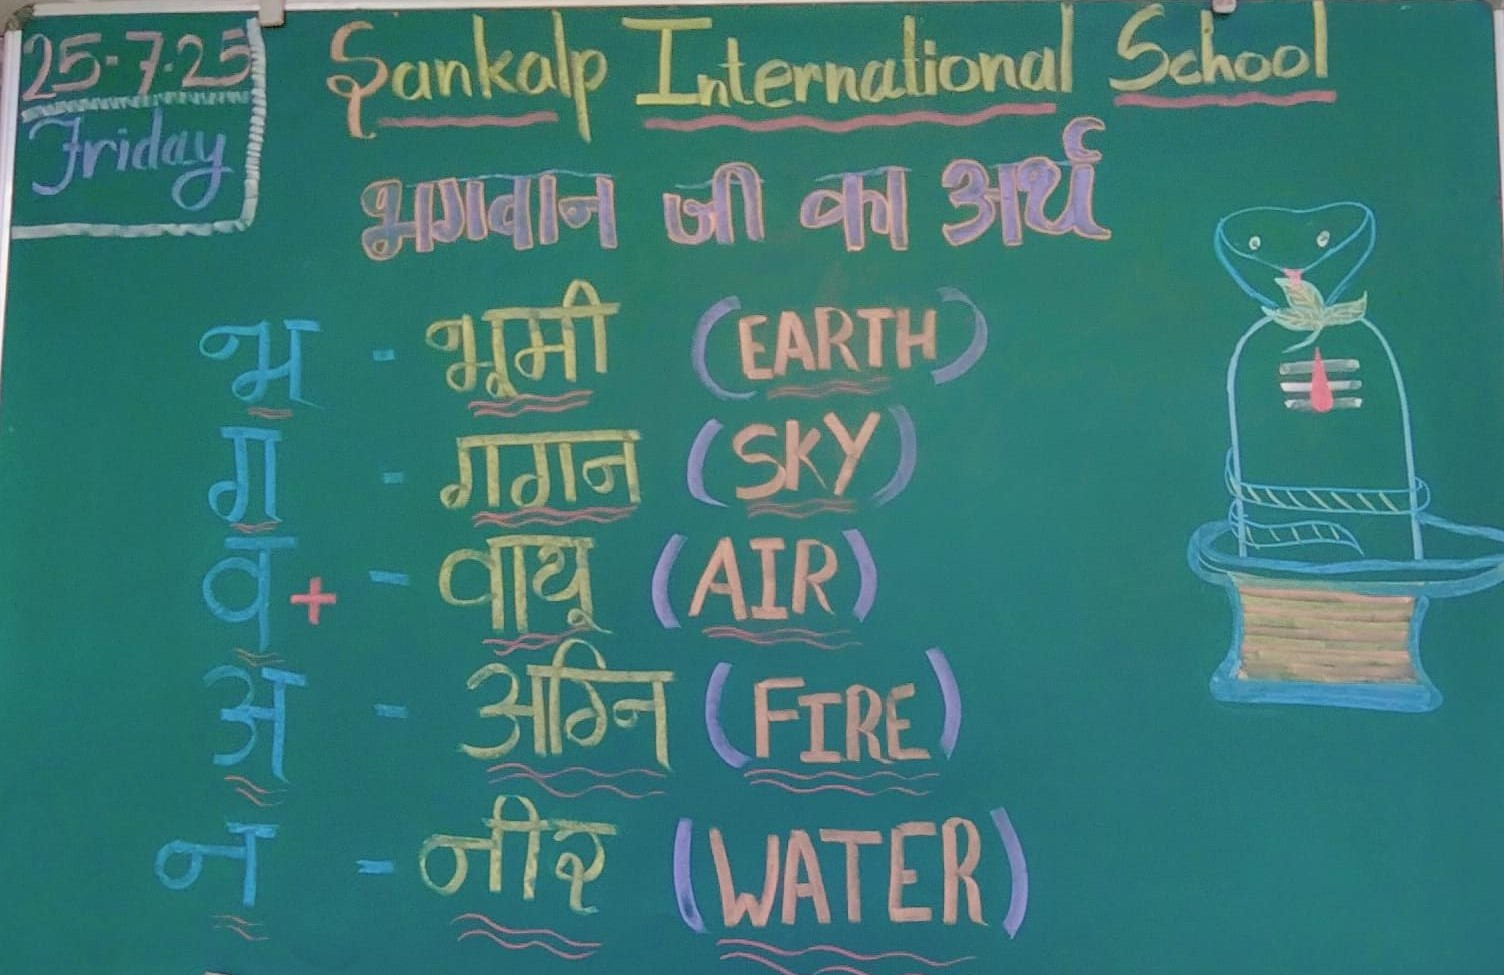 25-7-25
Friday
Sankalp International School
भगवान जी का अर्थ
भ - भूमी (EARTH)
ग - गगन (SKY)
व + - वायू (AIR)
अ - अग्नि (FIRE)
न - नीर (WATER)